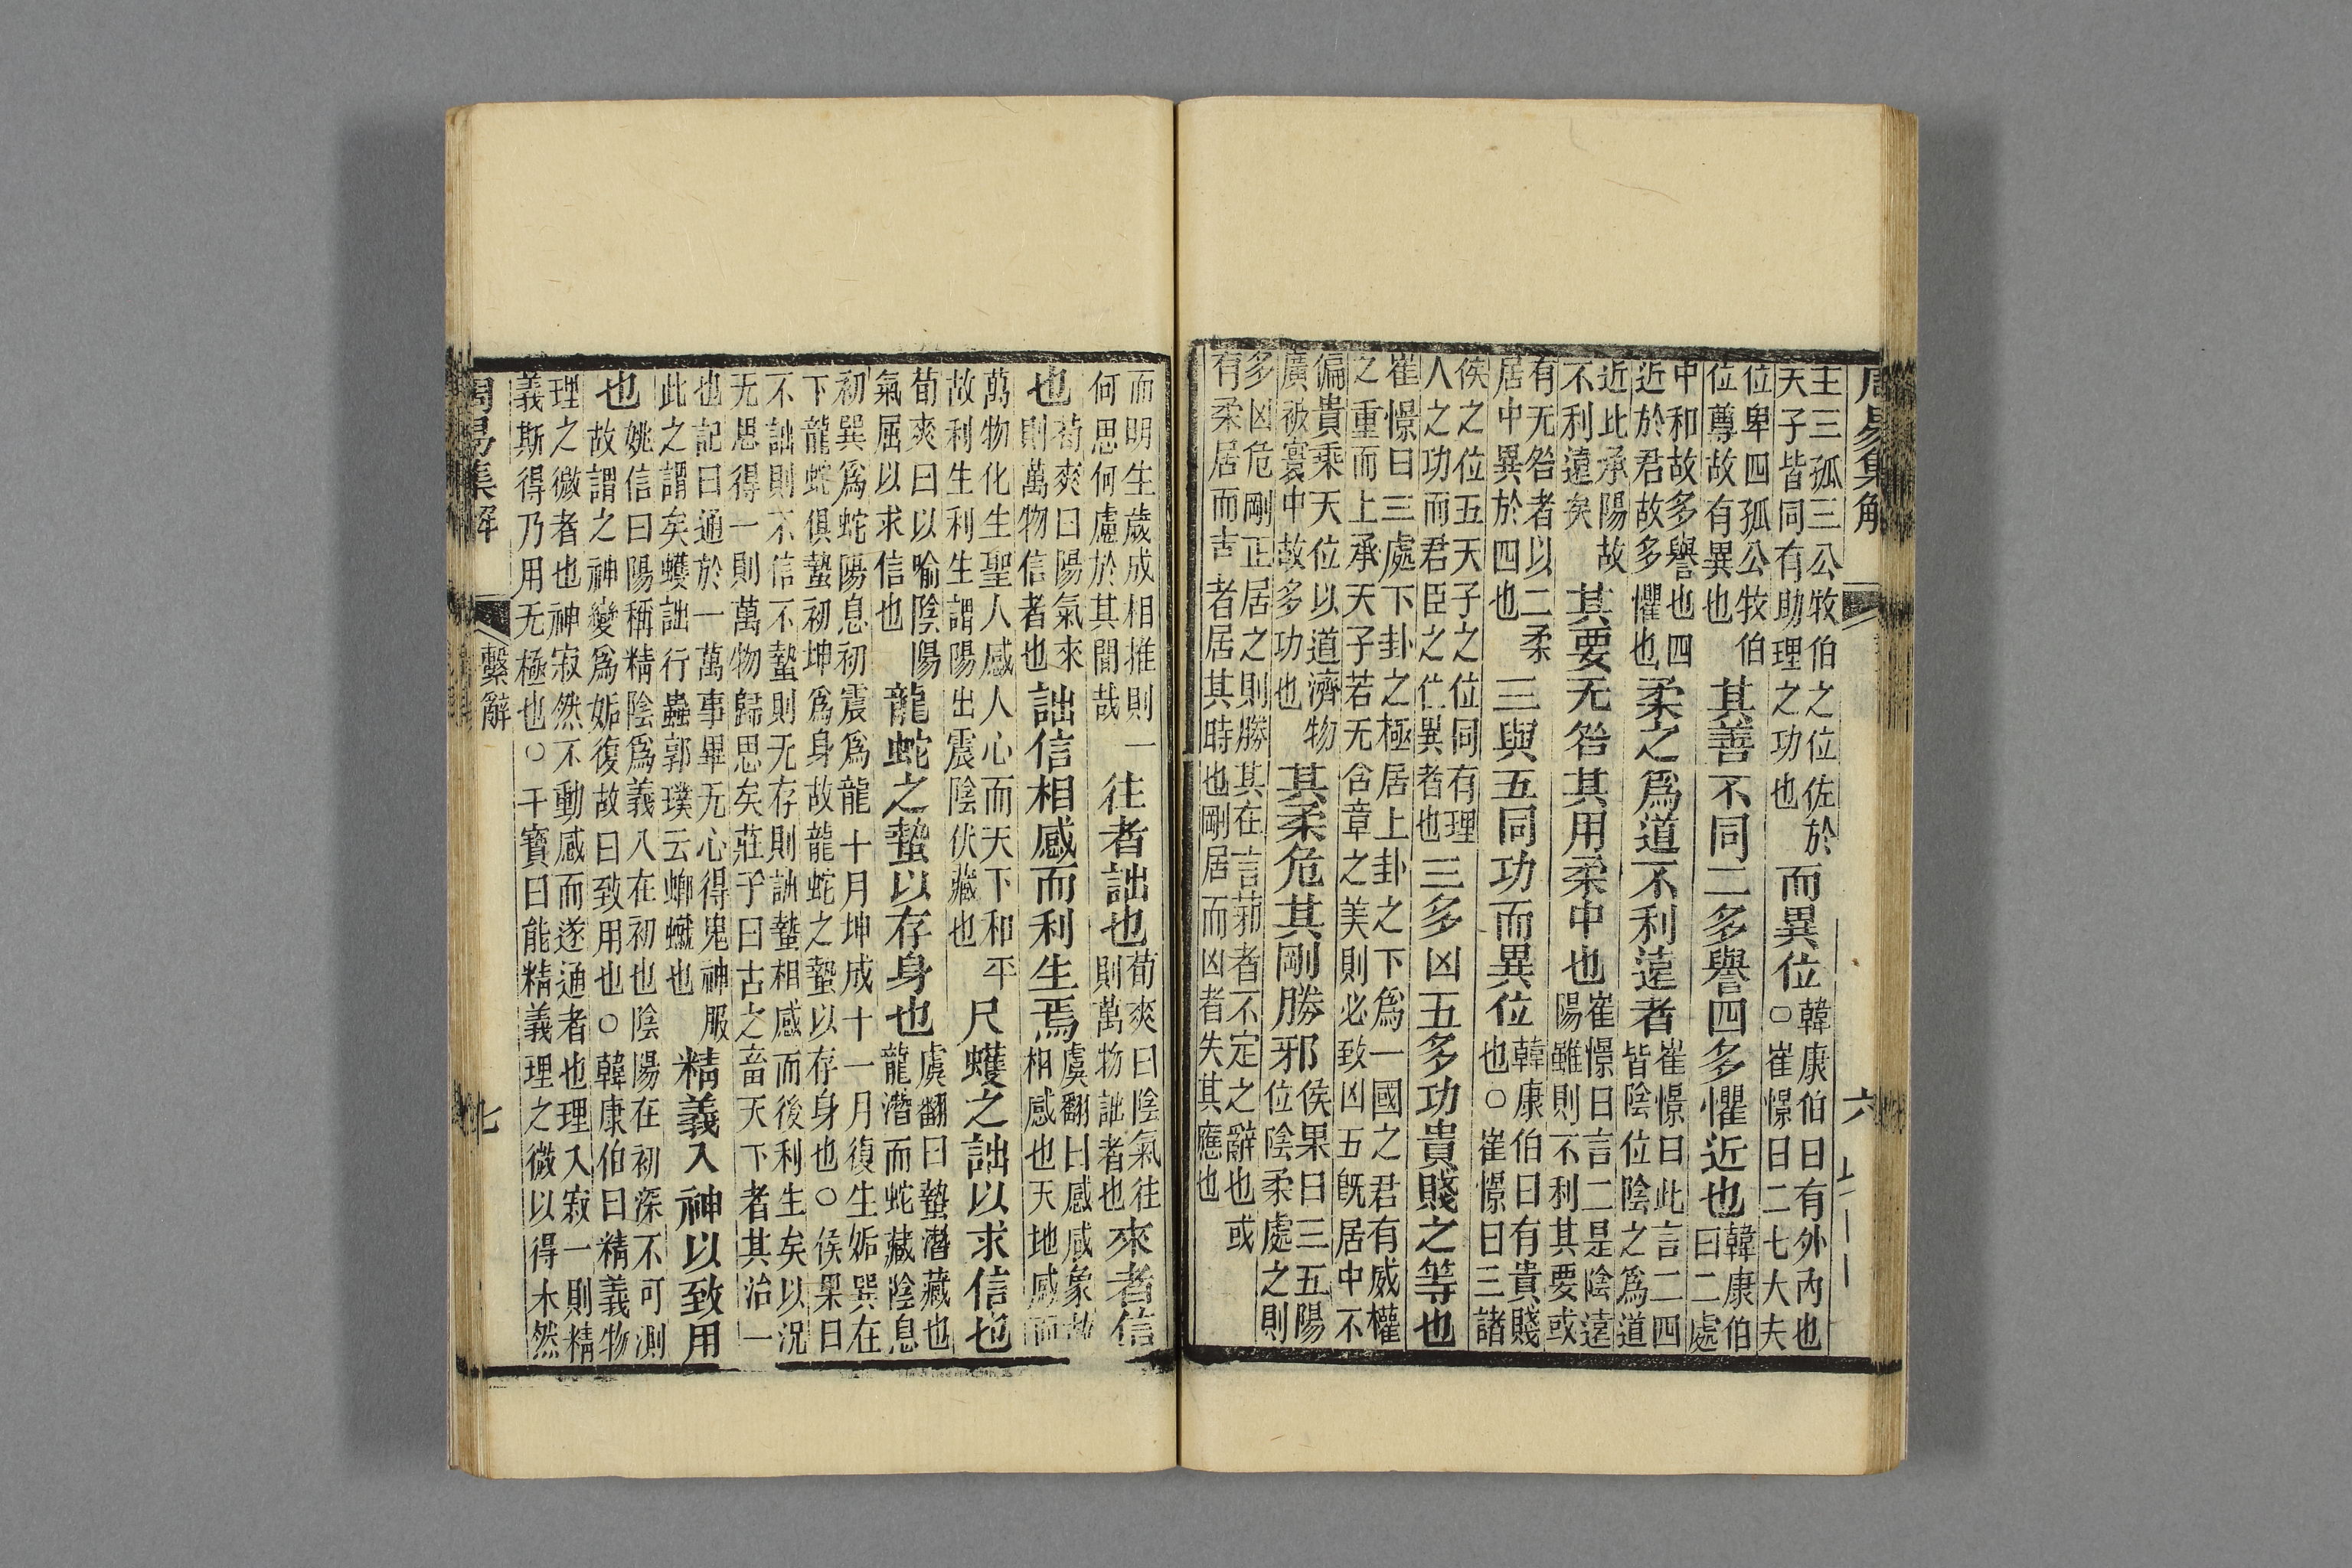 周易集解 六
主三孤三公牧伯之位佐於
天子皆同有助理之功也
而異位
韓康伯曰有外內也
○崔憬曰二七大夫
位卑四孤公牧伯
位尊故有異也
其善不同二多譽四多懼近也
韓康伯
曰二處
中和故多譽也四
近於君故多懼也
柔之爲道不利遠者
崔憬曰此言二四
皆陰位陰之爲道
近此承陽故
不利遠矣
其要无咎其用柔中也
崔憬曰言二是陰遠
陽雖則不利其要或
有无咎者以二柔
居中異於四也
三與五同功而異位
韓康伯曰有貴賤
也○崔憬曰三諸
侯之位五天子之位同有理
人之功而君臣之仁異者也
三多凶五多功貴賤之等也
崔憬曰三處下卦之極居上卦之下爲一國之君有威權
之重而上承天子若无含章之美則必致凶五旣居中不
偏貴乘天位以道濟物
廣被寰中故多功也
其柔危其剛勝邪
侯果曰三五陽
位陰柔處之則
多凶危剛正居之則勝其在言者不定之辭也或
有柔居而吉者居其時也剛居而凶者失其應也
而明生歲成相推則一
何思何慮於其間哉
往者詘也
荀爽曰陰氣往
則萬物詘者也
來者信
也
荀爽曰陽氣來
則萬物信者也
詘信相感而利生焉
虞翻曰感咸象故
相感也天地感而
萬物化生聖人感人心而天下和平
故利生利生謂陽出震陰伏藏也
尺蠖之詘以求信也
荀爽曰以喻陰陽
氣屈以求信也
龍蛇之蟄以存身也
虞翻曰蟄潛藏也
龍潛而蛇藏陰息
初巽爲蛇陽息初震爲龍十月坤成十一月復生姤巽在
下龍蛇俱蟄初坤爲身故龍蛇之蟄以存身也○侯果曰
不詘則不信不蟄則无存則詘蟄相感而後利生矣以況
无思得一則萬物歸思矣莊子曰古之畜天下者其治一
也記曰通於一萬事畢无心得鬼神服
此之謂矣蠖詘行蟲郭璞云蝍蠘也
精義入神以致用
也
姚信曰陽稱精陰爲義入在初也陰陽在初深不可測
故謂之神變爲姤復故曰致用也○韓康伯曰精義物
理之微者也神寂然不動感而遂通者也理入寂一則精
義斯得乃用无極也○干寶曰能精義理之微以得未然
周易集解 繫辭 七